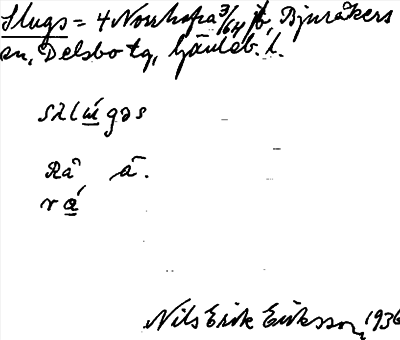 Slugs = 4 Norrhavra 3/64 fb, Bjuråkers
sn, Delsbo tg, Gävleb. l.
sɪlɯ́gəs
Rå å.
rá̱
Nils Erik Eriksson, 1936